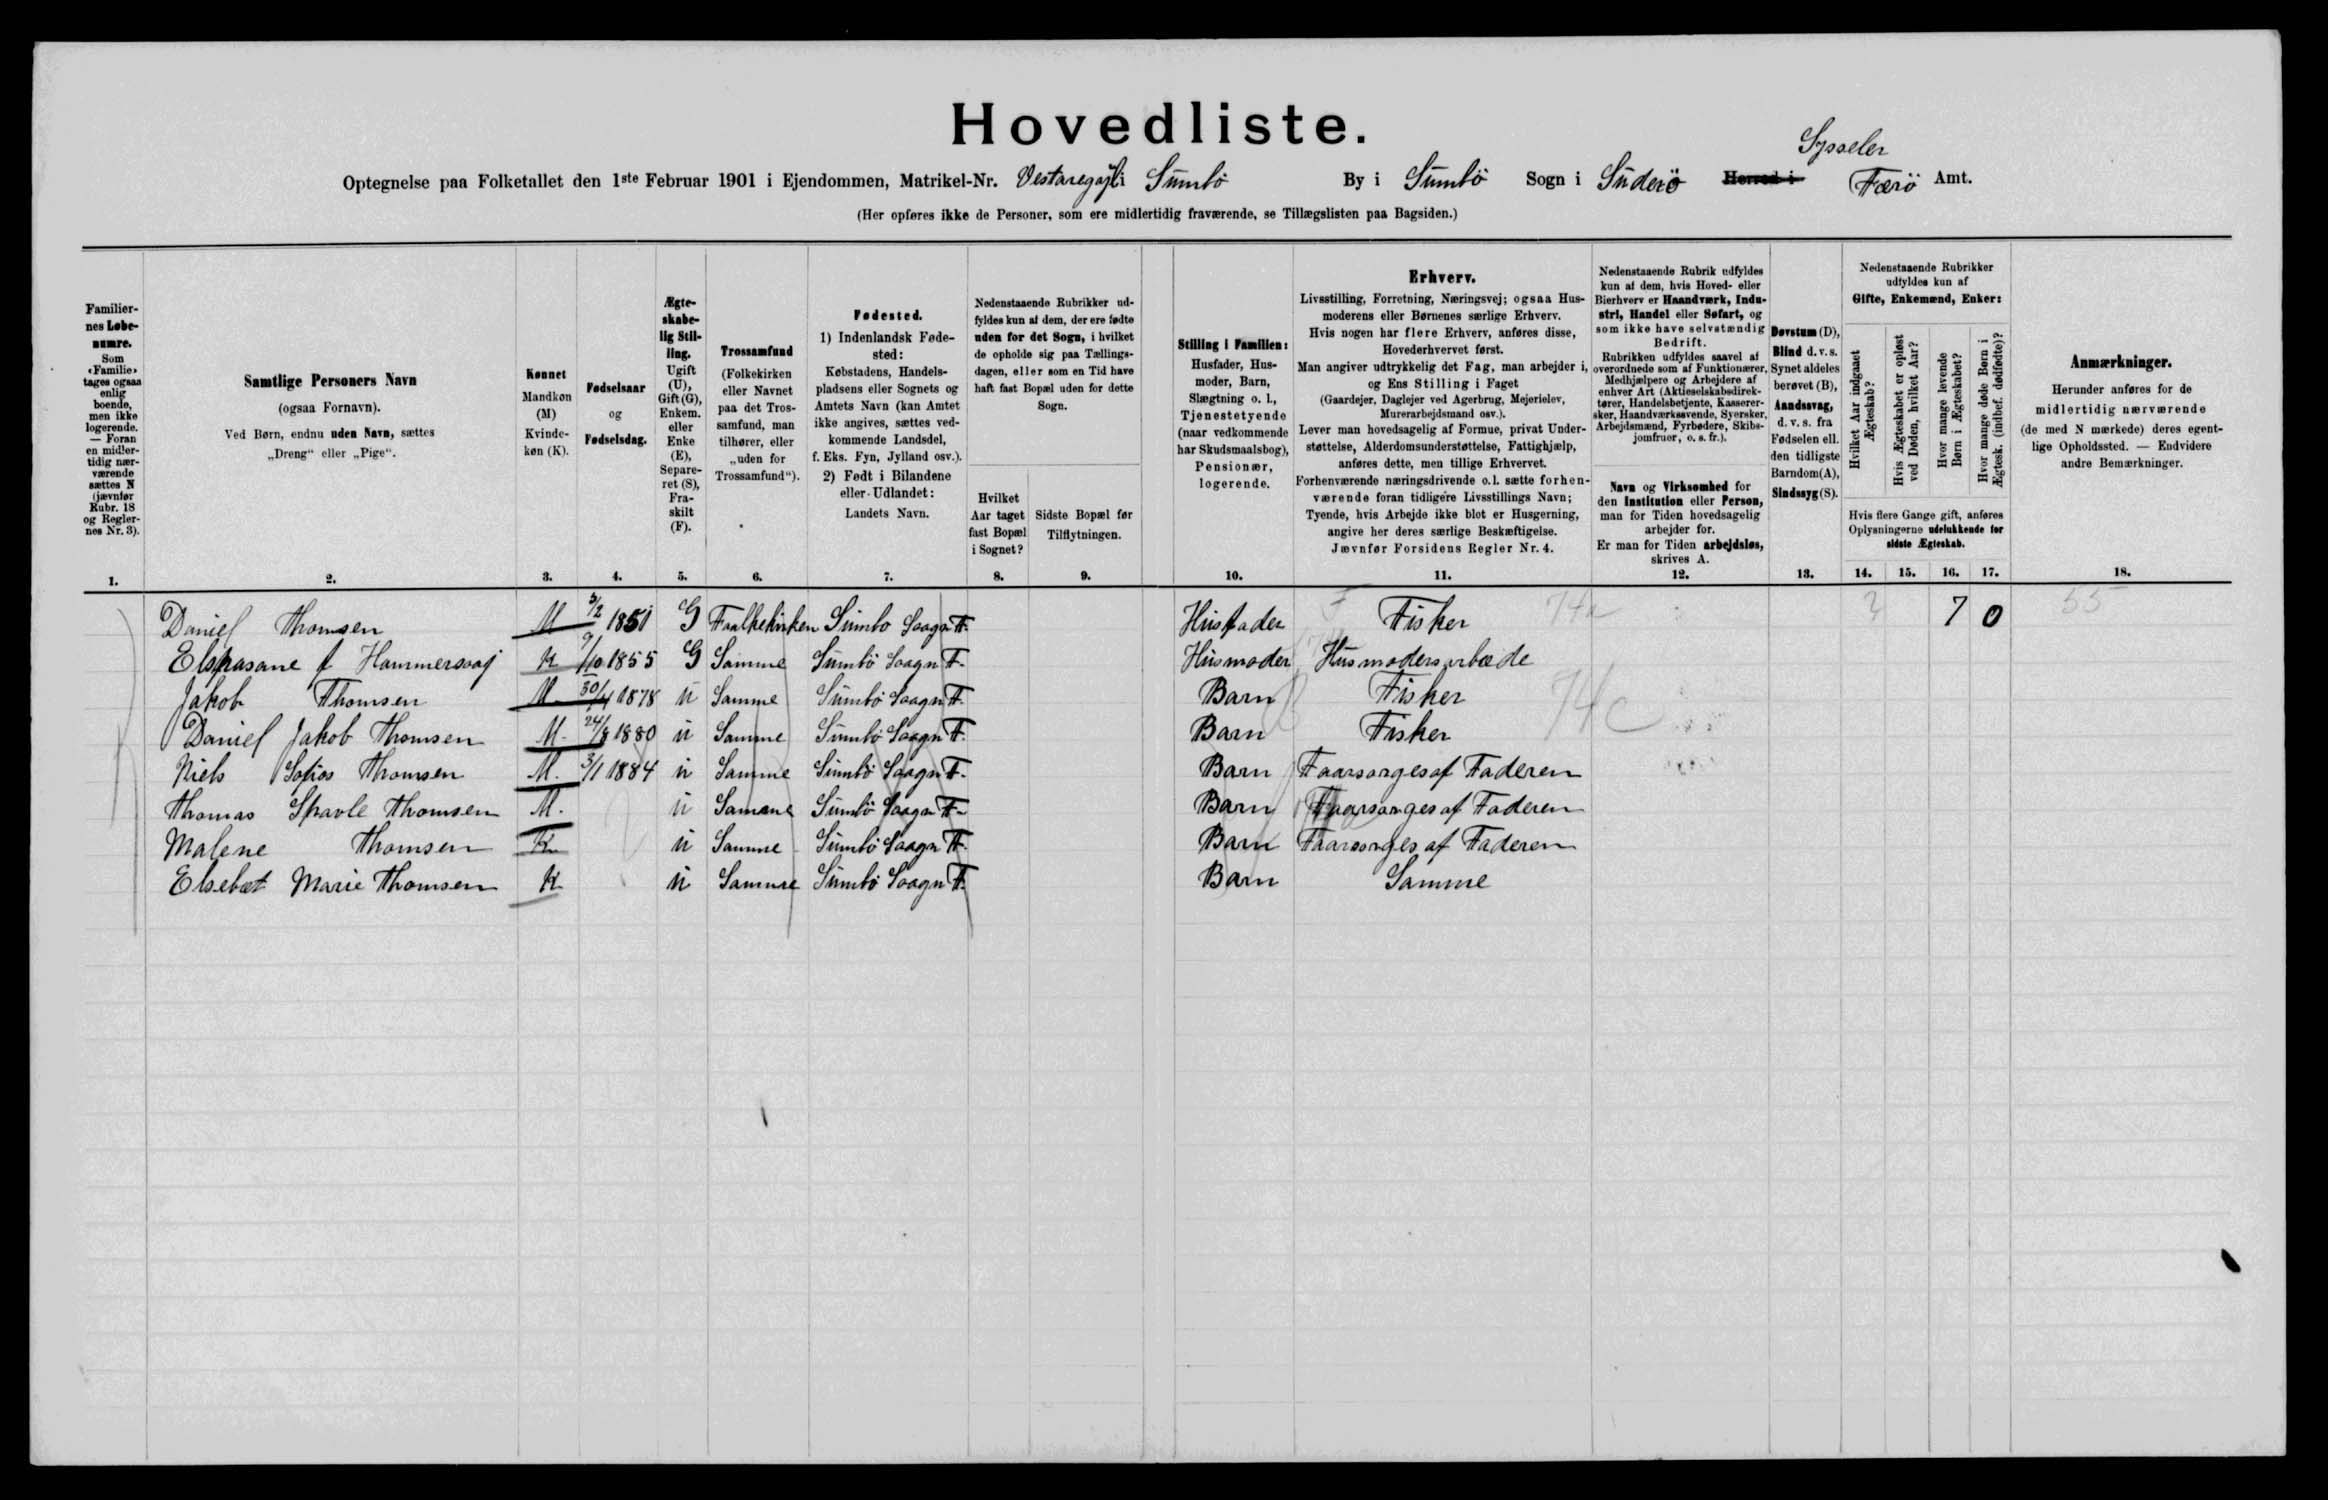 Hovedliste.
Sysseler
Optegnelse paa Folketallet den 1ste Februar 1901 i Ejendommen, Matrikel-Nr. Vestaregøjl i Sumbö By i Sumbö Sogn i Suderö Herred i Færö Amt.
(Her opføres ikke de Personer, som ere midlertidig fraværende, se Tillægslisten paa Bagsiden.)
Familiernes Løbenumre.
Som «Familie» tages ogsaa enlig boende, men ikke logerende. — Foran en midlertidig nærværende sættes N (jævnfør Rubr. 18 og Reglernes Nr. 3).
Samtlige Personers Navn
(ogsaa Fornavn).
Ved Børn, endnu uden Navn, sættes
„Dreng“ eller „Pige“.
Kønnet
Mandkøn (M)
Kvindekøn (K).
Fødselsaar og Fødselsdag.
Ægteskabelig Stilling.
Ugift (U), Gift (G), Enkem. eller Enke (E), Separeret (S), Fraskilt (F).
Trossamfund
(Folkekirken eller Navnet paa det Trossamfund, man tilhører, eller „uden for Trossamfund“).
Fødested.
1) Indenlandsk Fødested:
Købstadens, Handelspladsens eller Sognets og Amtets Navn (kan Amtet ikke angives, sættes vedkommende Landsdel, f. Eks. Fyn, Jylland osv.).
2) Født i Bilandene eller Udlandet:
Landets Navn.
Nedenstaaende Rubrikker udfyldes kun af dem, der ere fødte uden for det Sogn, i hvilket de opholde sig paa Tællingsdagen, eller som en Tid have haft fast Bopæl uden for dette Sogn.
Hvilket Aar taget fast Bopæl i Sognet?
Sidste Bopæl før Tilflytningen.
Stilling i Familien:
Husfader, Husmoder, Barn, Slægtning o. l., Tjenestetyende (naar vedkommende har Skudsmaalsbog), Pensionær, logerende.
Erhverv.
Livsstilling, Forretning, Næringsvej; ogsaa Husmoderens eller Børnenes særlige Erhverv.
Hvis nogen har flere Erhverv, anføres disse, Hovederhvervet først.
Man angiver udtrykkelig det Fag, man arbejder i, og Ens Stilling i Faget
(Gaardejer, Daglejer ved Agerbrug, Mejerielev, Murerarbejdsmand osv.).
Lever man hovedsagelig af Formue, privat Understøttelse, Alderdomsunderstøttelse, Fattighjælp, anføres dette, men tillige Erhvervet.
Forhenværende næringsdrivende o. l. sætte forhenværende foran tidligere Livsstillings Navn;
Tyende, hvis Arbejde ikke blot er Husgerning, angive her deres særlige Beskæftigelse.
Jævnfør Forsidens Regler Nr. 4.
Nedenstaaende Rubrik udfyldes kun af dem, hvis Hoved- eller Bierhverv er Haandværk, Industri, Handel eller Søfart, og som ikke have selvstændig Bedrift.
Rubrikken udfyldes saavel af overordnede som af Funktionærer, Medhjælpere og Arbejdere af enhver Art (Aktieselskabsdirektører, Handelsbetjente, Kasserersker, Haandværkssvende, Syersker, Arbejdsmænd, Fyrbødere, Skibsjomfruer, o. s. fr.).
Navn og Virksomhed for den Institution eller Person, man for Tiden hovedsagelig arbejder for.
Er man for Tiden arbejdsløs, skrives A.
Døvstum (D), Blind d. v. s. Synet aldeles berøvet (B), Aandssvag, d. v. s. fra Fødselen ell. den tidligste Barndom (A), Sindssyg (S).
Nedenstaaende Rubrikker udfyldes kun af
Gifte, Enkemænd, Enker:
Hvilket Aar indgaaet Ægteskab?
Hvis Ægteskabet er opløst ved Døden, hvilket Aar?
Hvor mange levende Børn i Ægteskabet?
Hvor mange døde Børn i Ægtesk. (indbef. dødfødte)?
Hvis flere Gange gift, anføres Oplysningerne udelukkende for sidste Ægteskab.
Anmærkninger.
Herunder anføres for de midlertidig nærværende (de med N mærkede) deres egentlige Opholdssted. — Endvidere andre Bemærkninger.
1. 2. 3. 4. 5. 6. 7. 8. 9. 10. 11. 12. 13. 14. 15. 16. 17. 18.
Daniel Thomsen M 3/2 1851 G Faalkekirken Sumbo Saagn F. Husfader F Fisker 74a ? 7 0 55
Elspasane f Hammersaaj K 9/10 1855 G Samme Sumbö Saagn F. Husmoder Husmodersarbæde
Jakob Thomsen M 30/4 1878 u Samme Sumbö Saagn F. Barn Fisker 74c
Daniel Jakob Thomsen M. 24/8 1880 u Samme Sumbö Saagn F. Barn Fisker
Niels Sofios Thomsen M. 3/1 1884 u Samme Sumbö Saagn F. Barn Faarsorges af Faderen
Thomas Spavle Thomsen M. u Samme Sumbö Saagn F. Barn Faarsorges af Faderen
Malene Thomsen K u Samme Sumbö Saagn F. Barn Faarsorges af Faderen
Elsebæt Marie Thomsen K u Samme Sumbö Saagn F. Barn Samme